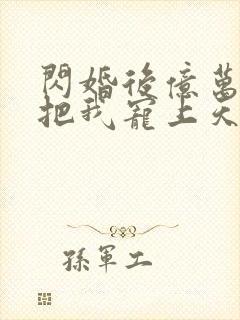 閃婚後億萬
把我寵上天
孫軍工